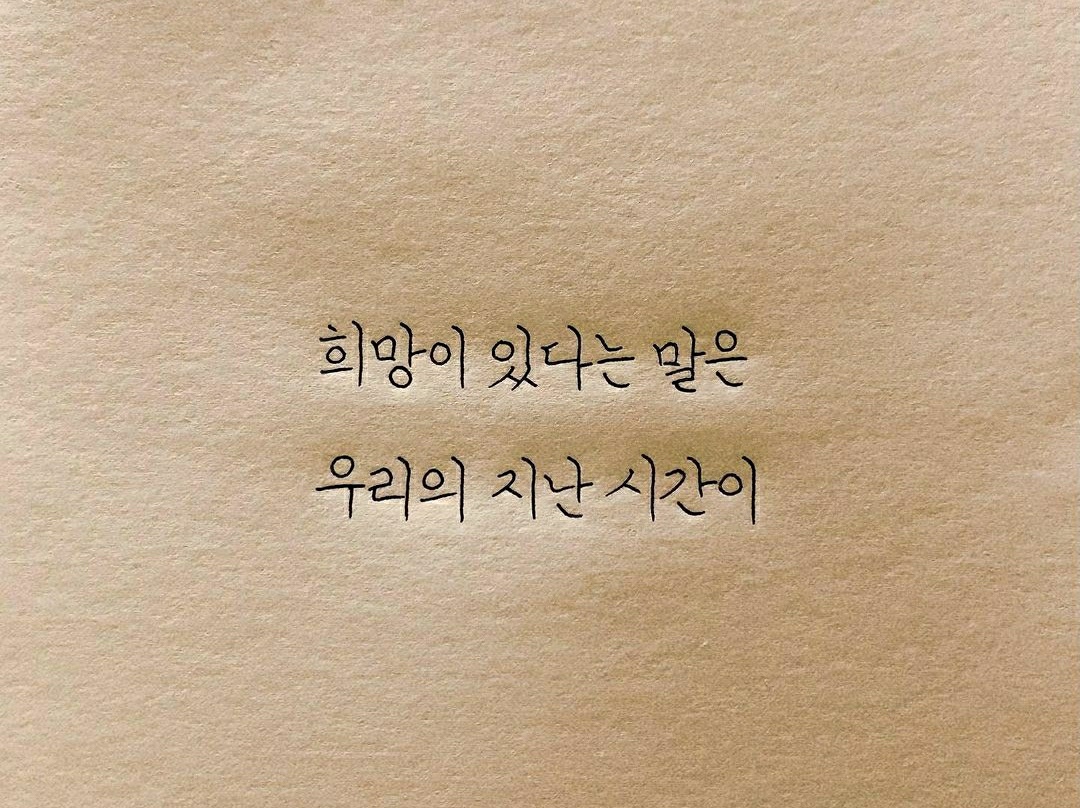 희망이 있다는 말은
우리의 지난 시간이